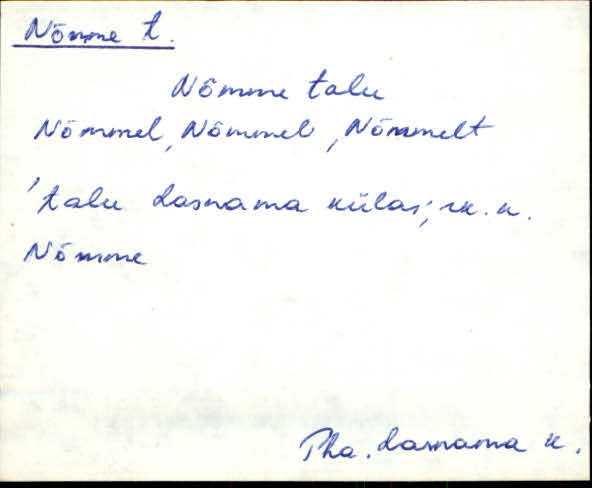 Nõmme t.
Nõmme talu
Nõmmel, Nõmmel, Nõmmelt
'talu Lasnama külas; rk. n.
Nõmme
Pha. Lasnama k.